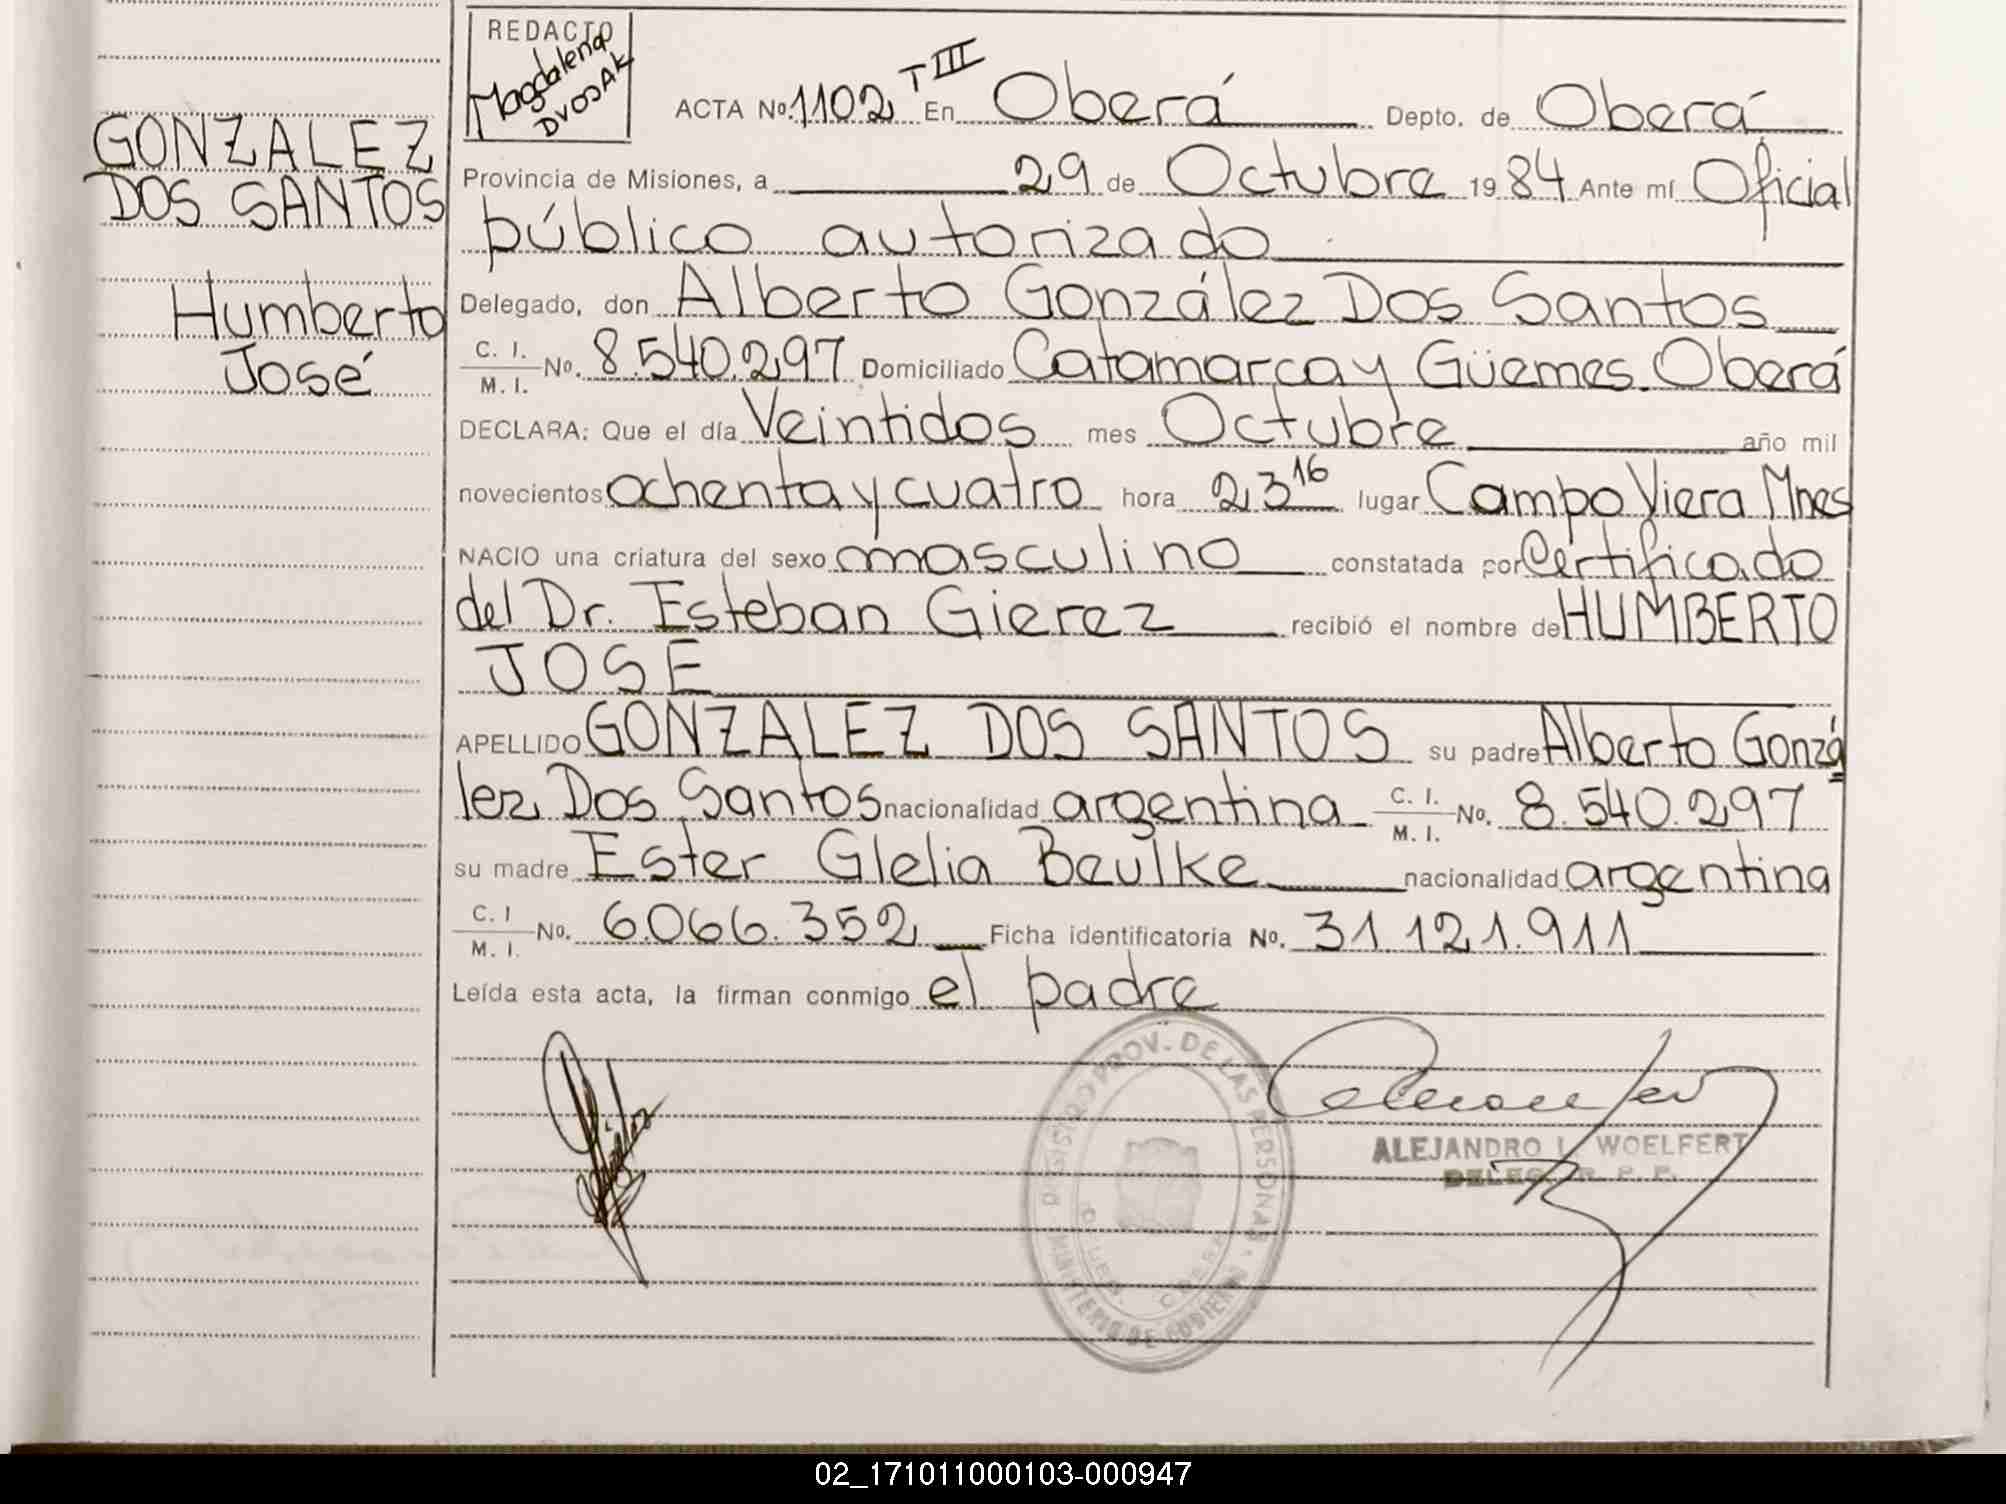 REDACTO
Magdalena
DVOSAK
GONZALEZ
DOS SANTOS
Humberto
José
ACTA No. 1102 T III En Oberá Depto. de Oberá
Provincia de Misiones, a 29 de Octubre 19 84 Ante mí Oficial
público autorizado
Delegado, don Alberto González Dos Santos
C. I. / M. I. No. 8.540.297 Domiciliado Catamarca y Güemes. Oberá
DECLARA: Que el día Veintidos mes Octubre año mil
novecientos ochenta y cuatro hora 23 16 lugar Campo Viera Mnes
NACIO una criatura del sexo masculino constatada por Certificado
del Dr. Esteban Gierez recibió el nombre de HUMBERTO
JOSE
APELLIDO GONZALEZ DOS SANTOS su padre Alberto Gonzá
lez Dos Santos nacionalidad argentina C. I. / M. I. No. 8.540.297
su madre Ester Glelia Beulke nacionalidad argentina
C. I / M. I. No. 6.066.352 Ficha identificatoria No. 31.121.911
Leída esta acta, la firman conmigo el padre
REGISTRO PROV. DE LAS PERSONAS
MINISTERIO DE GOBIERNO
ALEJANDRO L. WOELFERT
DELEG. R. P. P.
02_171011000103-000947